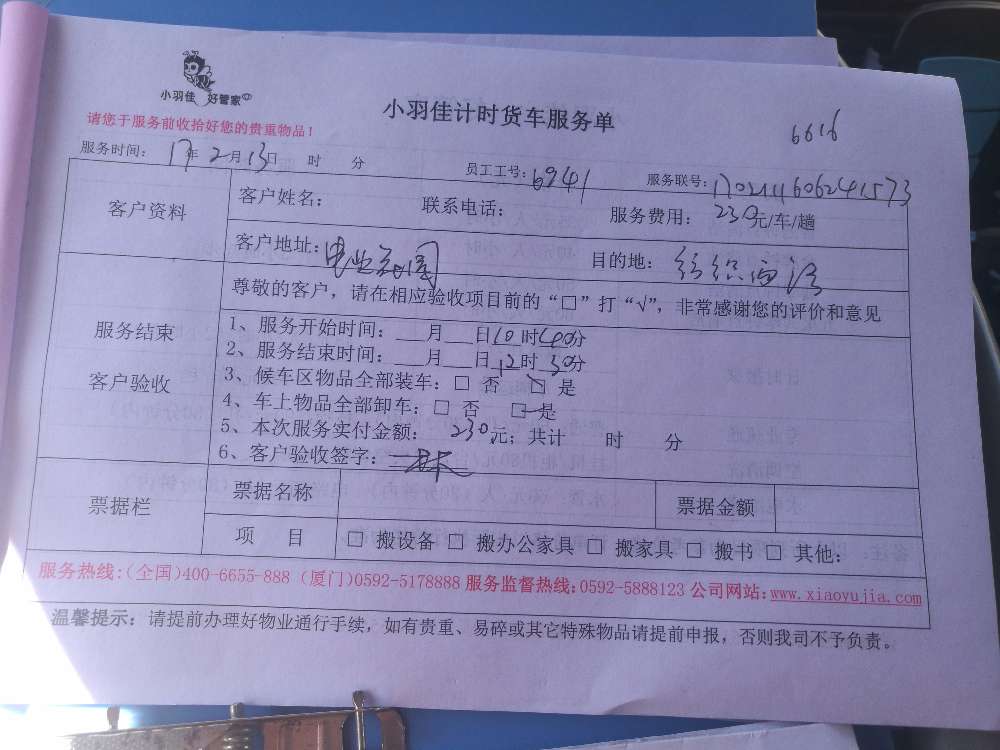 小羽佳 好管家
小羽佳计时货车服务单
6616
请您于服务前收拾好您的贵重物品！
服务时间： 17年 2月 13日 时 分
员工工号：6941
服务联号：
客户资料
客户姓名： 联系电话： 服务费用： 230元/车/趟
客户地址： 目的地：
服务结束
客户验收
尊敬的客户，请在相应验收项目前的“□”打“√”，非常感谢您的评价和意见
1、服务开始时间：___月___日10时 分
2、服务结束时间：___月___日12时30分
3、候车区物品全部装车：□ 否 □ 是
4、车上物品全部卸车：□ 否 □ 是
5、本次服务实付金额： 230元；共计 时 分
6、客户验收签字：
票据栏
票据名称 票据金额
项 目 □ 搬设备 □ 搬办公家具 □ 搬家具 □ 搬书 □ 其他：
服务热线：(全国)400-6655-888 (厦门)0592-5178888 服务监督热线：0592-5888123 公司网站：www.xiaoyujia.com
温馨提示：请提前办理好物业通行手续，如有贵重、易碎或其它特殊物品请提前申报，否则我司不予负责。